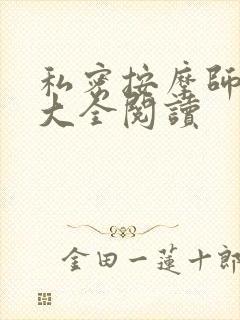 私密按摩師
大全閱讀
金田一蓮十郎